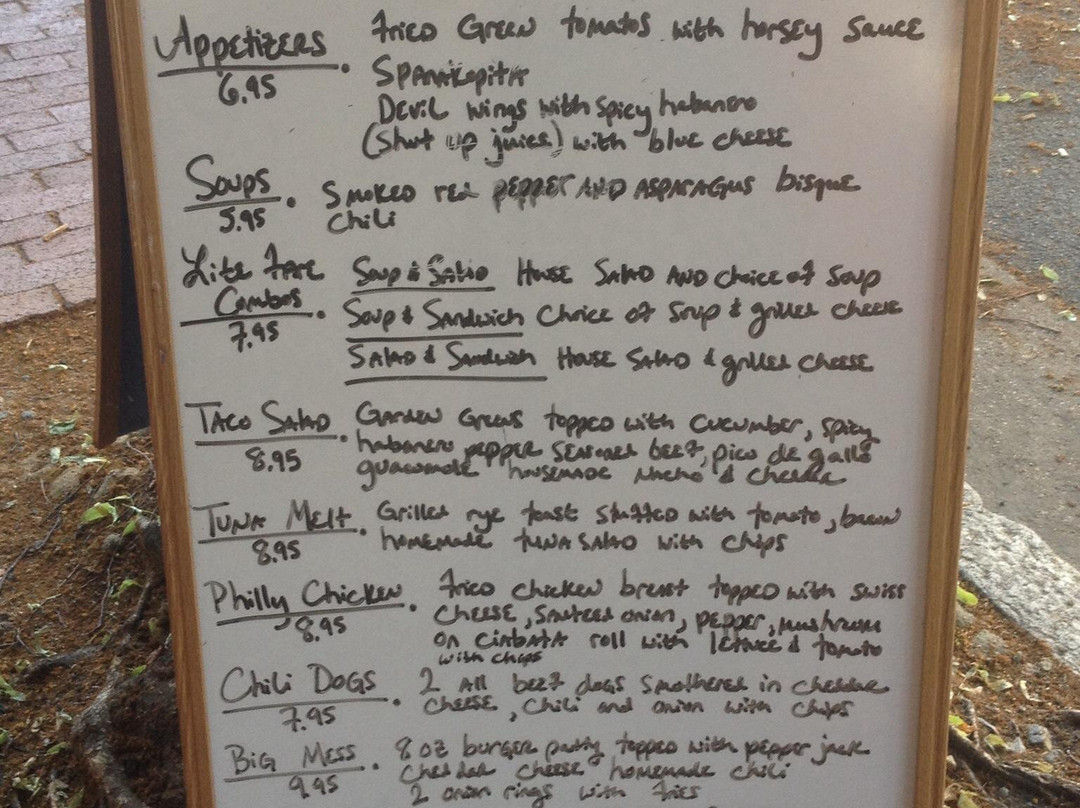 Appetizers. Fried Green tomatos with horsey sauce
6.95 Spanakopita
Devil wings with spicy habanero
(shut up juice) with blue cheese
Soups. Smoked red pepper and asparagus bisque
5.95 chili
Lite Fare Soup & Salad House Salad and choice of soup
Combos. Soup & Sandwich Choice of Soup & grilled cheese
7.95 Salad & Sandwich House Salad & grilled cheese
Taco Salad. Garden Greens topped with cucumber, spicy
8.95 habanero pepper seasoned beef, pico de gallo
guacamole housemade nacho & cheddar
Tuna Melt. Grilled rye toast stuffed with tomato, bacon
8.95 homemade tuna salad with chips
Philly Chicken. Fried chicken breast topped with swiss
8.95 cheese, sauteed onion, pepper, mushroom
on ciabata roll with lettuce & tomato
with chips
Chili Dogs. 2 all beef dogs smothered in cheddar
7.95 cheese, chili and onion with chips
Big Mess. 8 oz burger patty topped with pepper jack
9.95 cheddar cheese homemade chili
2 onion rings with fries